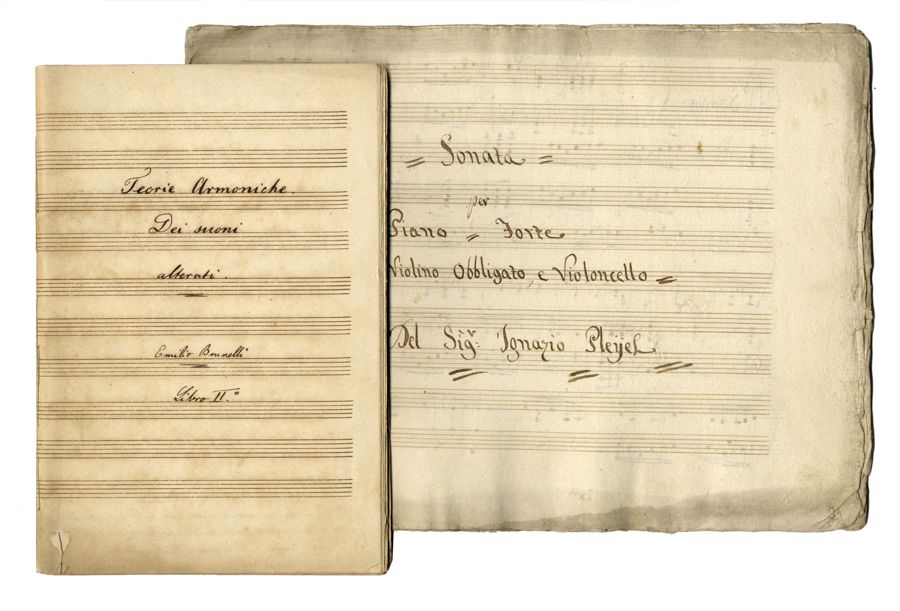 Teorie Armoniche.
Dei suoni
alterati.
Emilio Brunelli
Libro II.°
= Sonata =
per
Piano = Forte
Violino Obbligato, e Violoncello =
Del Sig.r: Ignazio Pleÿel